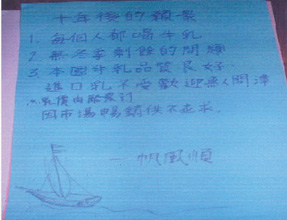 十年後的願景
1. 每個人都喝牛乳
2. 無冬季剩餘的問題
3. 本國牛乳品質良好
進口乳不受歡迎無人問津
因市場暢銷供不應求
一帆風順